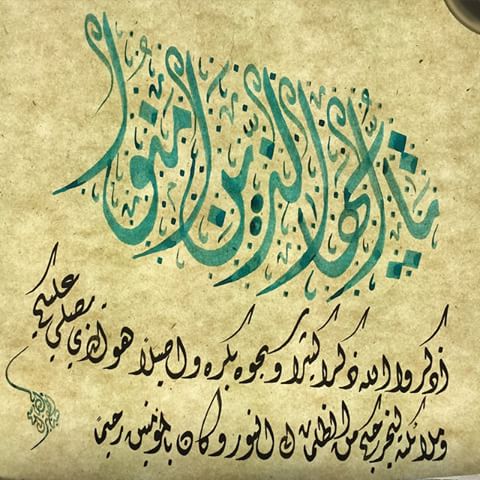 يَا أَيُّها الذِّين امنوا
اذكروا الله ذكرا كثيرا وسبحوه بكره واصيلا هو الذي يصلي عليكم
وملائكته ليخرجكم من الظلمات الى النور وكان بالمؤمنين رحيما